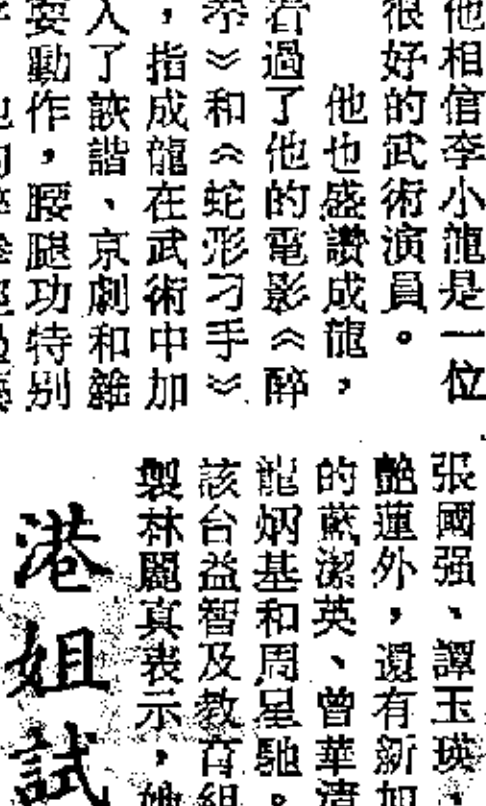 他相信李小龍是一位
很好的武術演員。
他也盛讚成龍，
看過了他的電影《醉
拳》和《蛇形刁手》
，指成龍在武術中加
入了詼諧、京劇和雜
耍動作，腰腿功特别
張國强、譚玉瑛、
艷蓮外，還有新加
的藍潔英、曾華淸
龍炳基和周星馳。
該台益智及教育組
製林麗真表示，她
港姐試